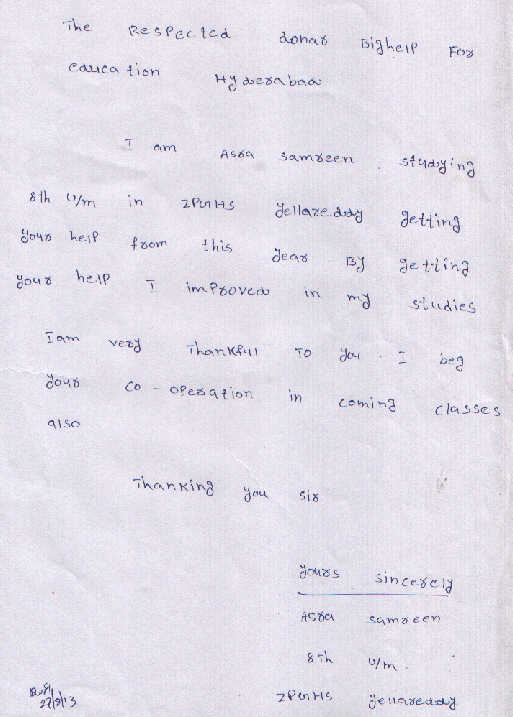 The Respected donar Bighelp For
education Hyderabad
I am Asra samreen. studying
8th U/m in ZPUHS Yellareddy getting
your help from this year By getting
your help I improved in my studies
I am very Thankfull To you. I beg
your co-operation in coming classes
also
Thanking you sir
yours sincerely
Asra samreen
8th U/m.
ZPUHS Yellareddy